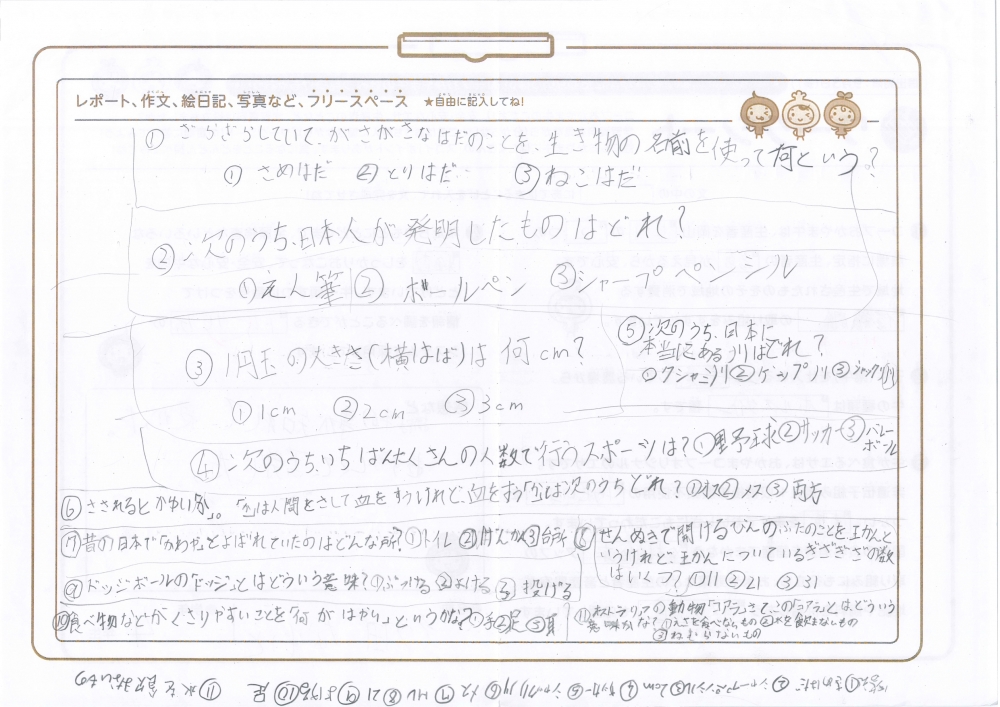 レポート、作文、絵日記、写真など、フリースペース ★自由に記入してね!
① ざらざらしていて、がさがさなはだのことを、生き物の名前を使って何という?
① さめはだ ②とりはだ ③ねこはだ
② 次のうち、日本人が発明したものはどれ?
①えん筆 ②ボールペン ③シャープペンシル
③ 1円玉の大きさ(横はば)は何cm?
① 1cm ②2cm ③3cm
⑤次のうち、日本に
本当にあるノリはどれ?
①クシャミノリ②ゲップノリ③シャックリノリ
④次のうち、いちばんたくさんの人数で行うスポーツは?①野球②サッカー③バレー
ボール
⑥さされるとかゆい「か」。「か」は人間をさして血をすうけれど、血をすう「か」は次のうちどれ?①オス②メス③両方
⑦昔の日本で「かわや」とよばれていたのはどんな所?①トイレ②げんかん③台所
⑧せんぬきで開けるびんのふたのことを王かんと
いうけれど、王かんについているぎざぎざの数
はいくつ?①11②21 ③31
⑨ドッジボールの「ドッジ」とはどういう意味?①ぶつける②よける③投げる
⑩食べ物などがくさりやすいことを「何がはやい」というかな?①手②足③耳
⑪オーストラリアの動物「コアラ」さて、この「コアラ」とはどういう
意味かな?①えさを食べないもの②水を飲まないもの
③ねむらないもの
答え①さめはだ ②シャープペンシル③2cm ④サッカー⑤シャックリノリ⑥メス ⑦トイレ⑧21⑨よける⑩足 ⑪水を飲まないもの